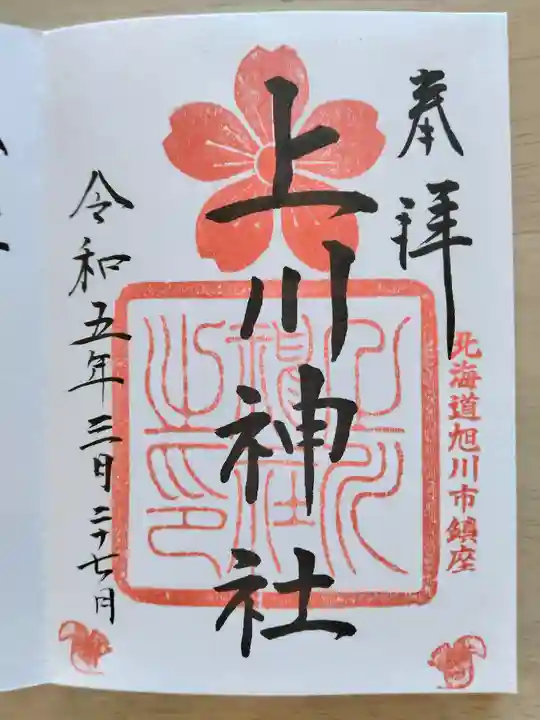 奉拝
北海道旭川市鎮座
上川神社
上川
神社
之印
令和五年三日二十七月